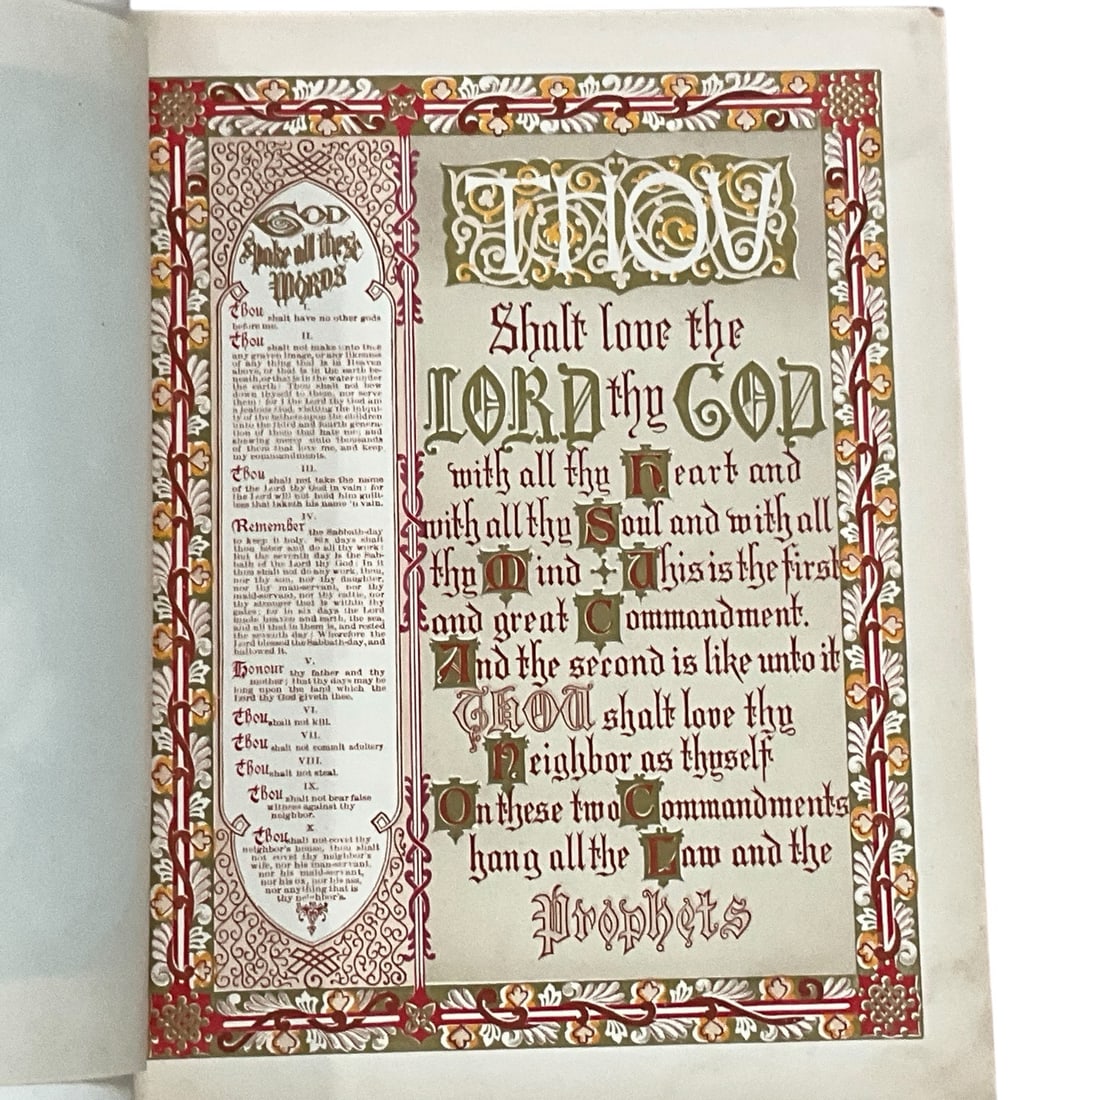 GOD
spake all these
WORDS
I.
Thou shall have no other gods
before me.
II.
Thou shall not make unto thee
any graven image, or any likeness
of any thing that is in Heaven
above, or that is in the earth be-
neath, or that is in the water under
the earth: Thou shalt not bow
down thyself to them, nor serve
them: for I the Lord thy God am
a jealous God, visiting the iniqui-
ty of the fathers upon the children
unto the third and fourth genera-
tion of them that hate me; and
shewing mercy unto thousands
of them that love me, and keep
my commandments.
III.
Thou shall not take the name
of the Lord thy God in vain: for
the Lord will not hold him guilt-
less that taketh his name in vain.
IV.
Remember the Sabbath-day
to keep it holy. Six days shalt
thou labor and do all thy work:
but the seventh day is the Sab-
bath of the Lord thy God: In it
thou shalt not do any work, thou,
nor thy son, nor thy daughter,
nor thy man-servant, nor thy
maid-servant, nor thy cattle, nor
thy stranger that is within thy
gates; for in six days the Lord
made heaven and earth, the sea,
and all that in them is, and rested
the seventh day: Wherefore the
Lord blessed the Sabbath-day, and
hallowed it.
V.
Honour thy father and thy
mother; that thy days may be
long upon the land which the
Lord thy God giveth thee.
VI.
Thou shall not kill.
VII.
Thou shall not commit adultery
VIII.
Thou shall not steal.
IX.
Thou shall not bear false
witness against thy
neighbor.
X
Thou shall not covet thy
neighbor's house, thou shalt
not covet thy neighbor's
wife, nor his man-servant,
nor his maid-servant,
nor his ox, nor his ass,
nor anything that is
thy neighbor's.
THOU
Shalt love the
LORD thy GOD
with all thy Heart and
with all thy Soul and with all
thy Mind This is the first
and great Commandment.
And the second is like unto it
THOU shalt love thy
Neighbor as thyself
On these two Commandments
hang all the Law and the
Prophets